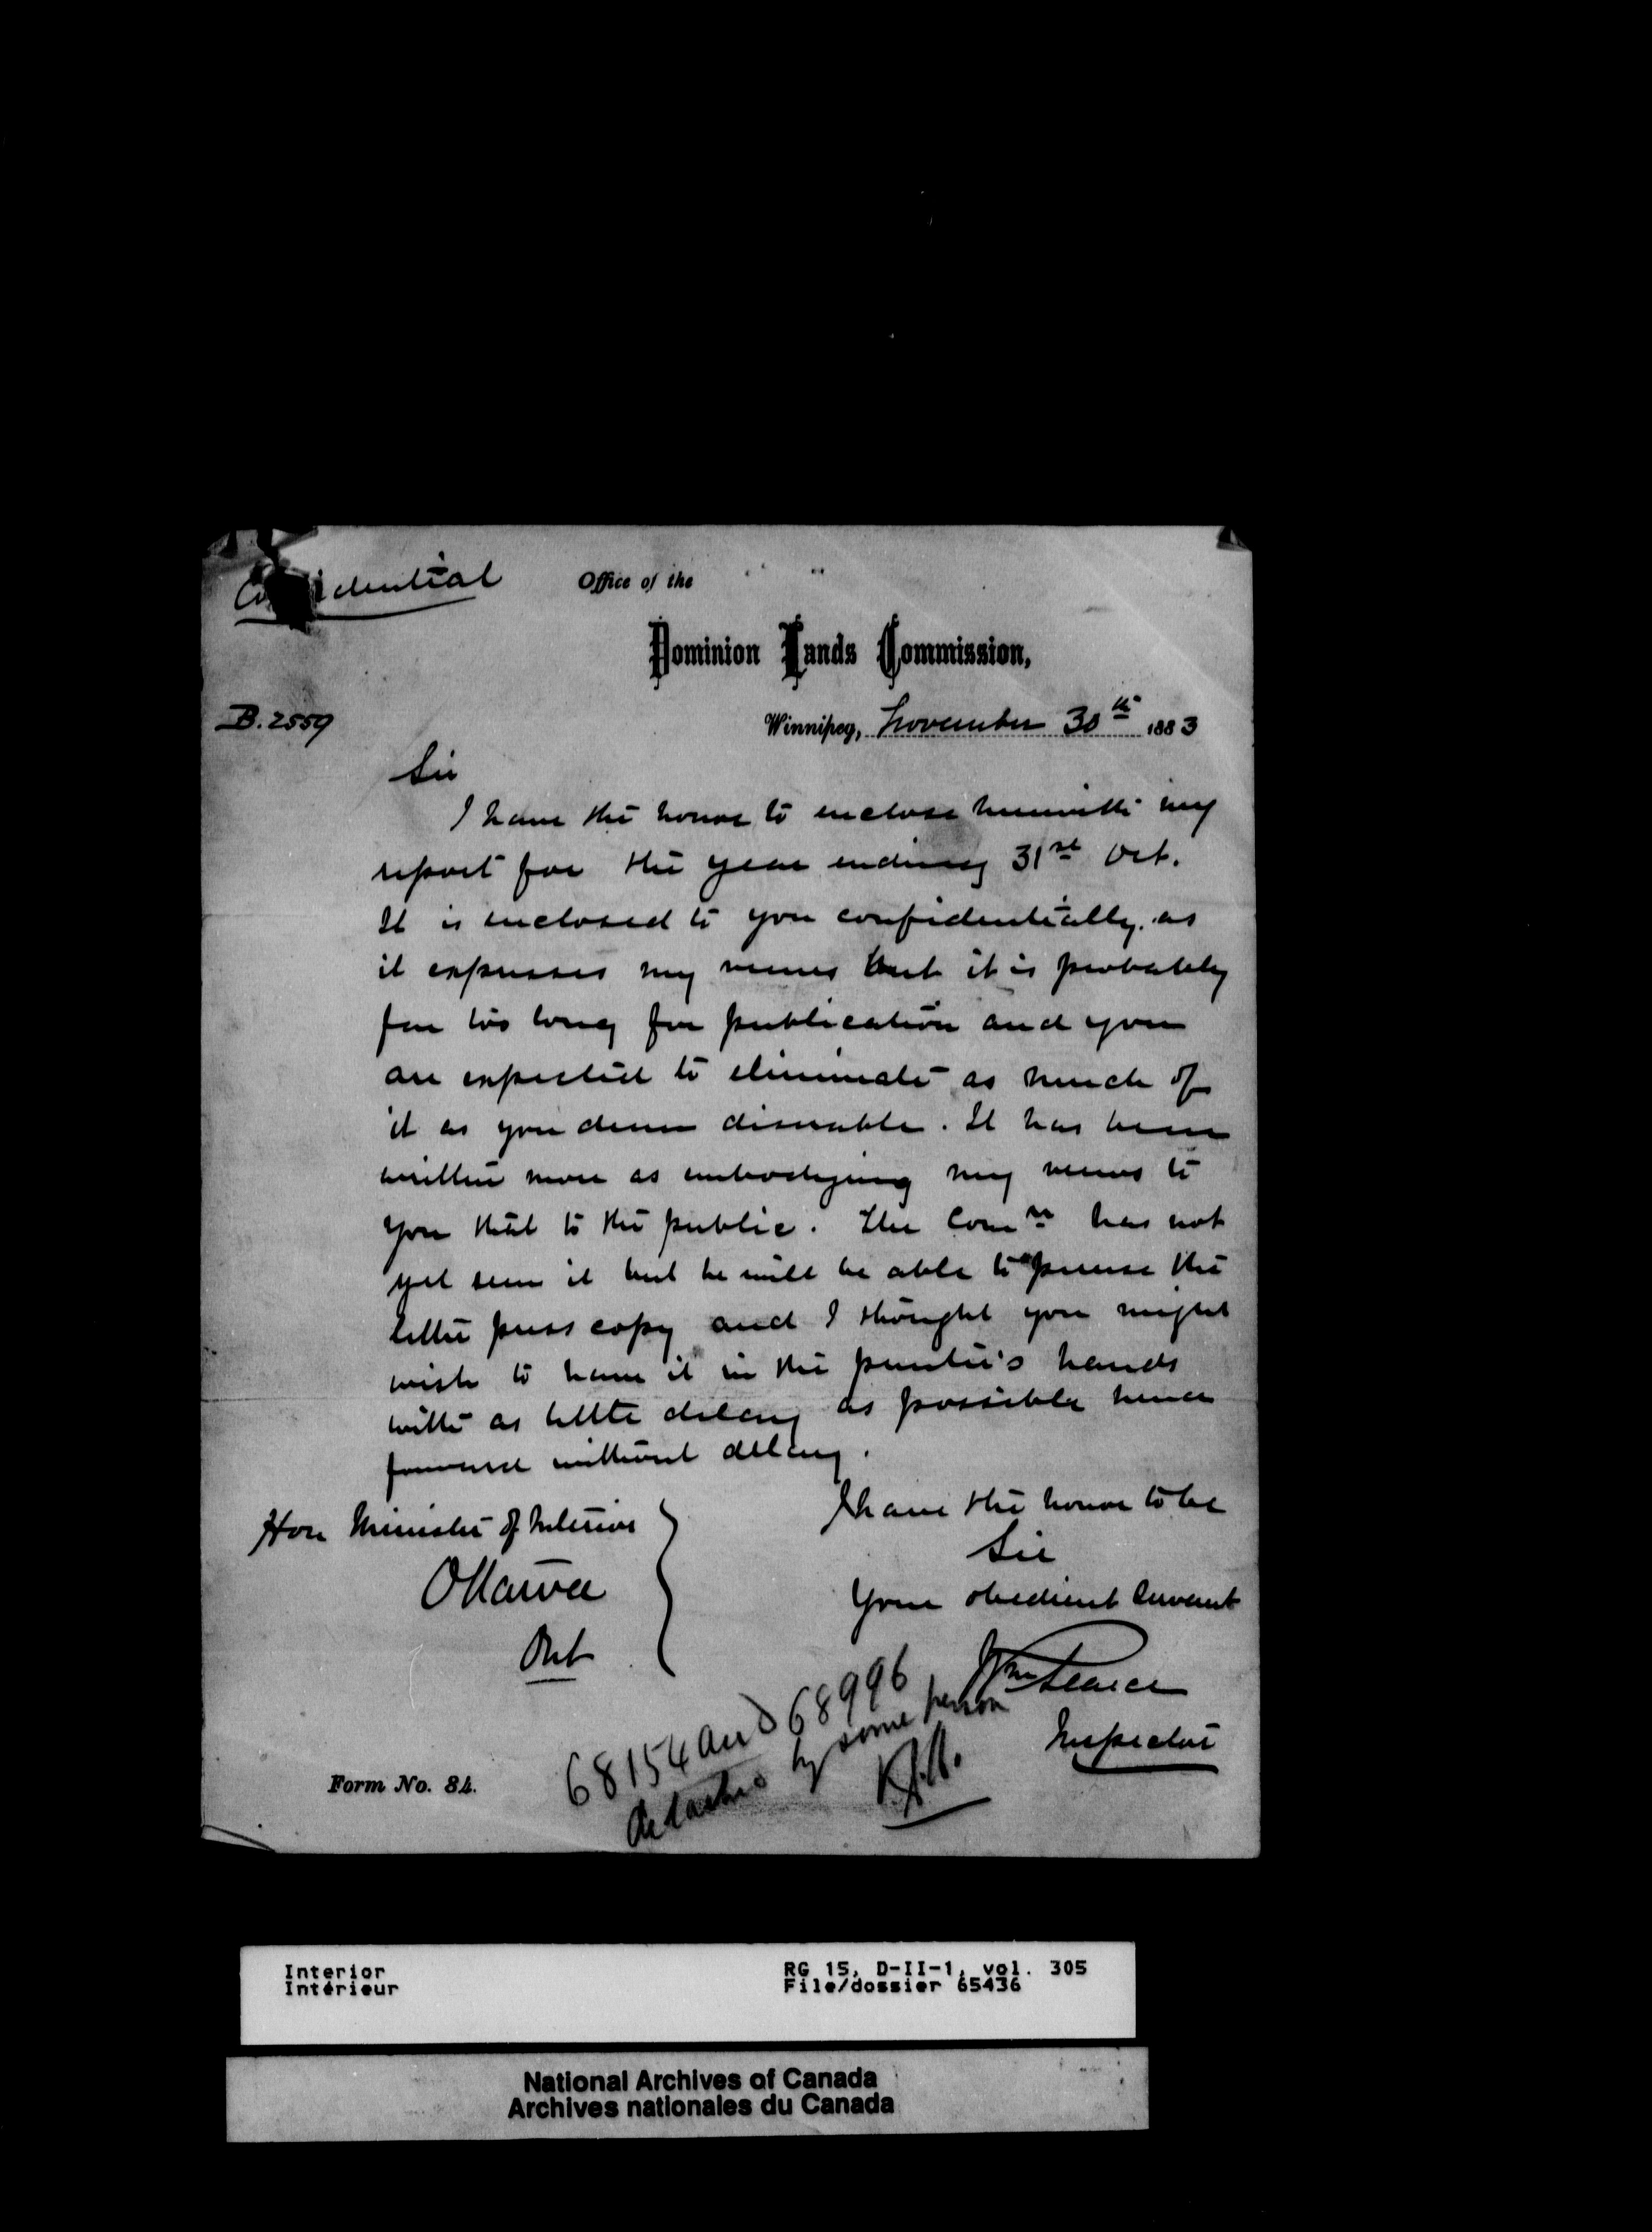 Confidential
Office of the
Dominion Lands Commission,
B. 2559
Winnipeg, November 30th 1883
Sir
I have the honor to enclose herewith my
report for the year ending 31st Oct.
It is enclosed to you confidentially. as
it expresses my views but it is probably
far too long for publication and you
are expected to eliminate as much of
it as you deem desirable. It has been
written more as embodying my views to
you that to the public. The Comr has not
yet seen it but he will be able to peruse the
letter press copy and I thought you might
wish to have it in the printer's hands
with as little delay as possible hence
forward without delay.
I have the honor to be
Sir
Your obedient Servant
Wm Pearce
Inspector
Hon Minister of Interior
Ottawa
Ont
68154 and 68996
detached by some person
Form No. 84.
Interior
Intérieur
RG 15, D-II-1, vol. 305
File/dossier 65436
National Archives of Canada
Archives nationales du Canada